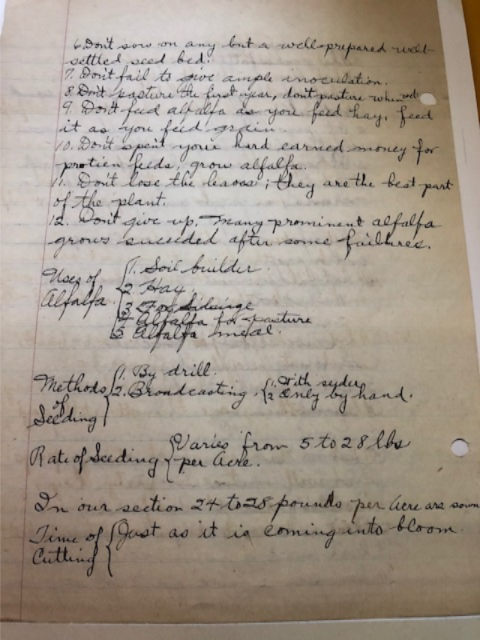 6. Don't sow on any but a well-prepared well-
settled seed bed.
7. Don't fail to give ample inoculation.
8. Don't pasture the first year, don't pasture when wet
9. Don't feed alfalfa as you feed hay, feed
it as you feed grain.
10. Don't spent your hard earned money for
protien feeds, grow alfalfa.
11. Don't lose the leaves; they are the best part
of the plant.
12. Don't give up. Many prominent alfalfa
grows succeeded after some failures.
Uses of Alfalfa
1. Soil builder.
2. Hay.
3. For Silage
4 Alfalfa for pasture
5 Alfalfa meal.
Methods of Seeding
1. By drill.
2. Broadcasting.
1. With
2 Only by hand.
Rate of Seeding
Varies from 5 to 28 lbs
per Acre.
In our section 24 to 28 pounds per Acre are sown
Time of Cutting
Just as it is coming into bloom.